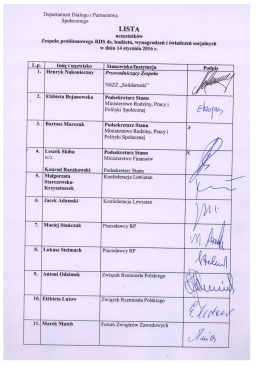 Departament Dialogu i Partnerstwa
Społecznego
LISTA
uczestników
Zespołu problemowego RDS ds. budżetu, wynagrodzeń i świadczeń socjalnych
w dniu 14 stycznia 2016 r.
L.p. Imię i nazwisko Stanowisko/Instytucja Podpis
1. Henryk Nakonieczny Przewodniczący Zespołu
NSZZ „Solidarność”
2. Elżbieta Bojanowska Podsekretarz Stanu
Ministerstwo Rodziny, Pracy i
Polityki Społecznej
3. Bartosz Marczuk Podsekretarz Stanu
Ministerstwo Rodziny, Pracy i
Polityki Społecznej
4. Leszek Skiba Podsekretarz Stanu
w/z Ministerstwo Finansów
Konrad Raczkowski Podsekretarz Stanu
5. Małgorzata Konfederacja Lewiatan
Starczewska-
Krzysztoszek
6. Jacek Adamski Konfederacja Lewiatan
7. Maciej Stańczuk Pracodawcy RP
8. Łukasz Stelmach Pracodawcy RP
9. Antoni Odzimek Związek Rzemiosła Polskiego
10. Elżbieta Lutow Związek Rzemiosła Polskiego
11. Marek Mnich Forum Związków Zawodowych